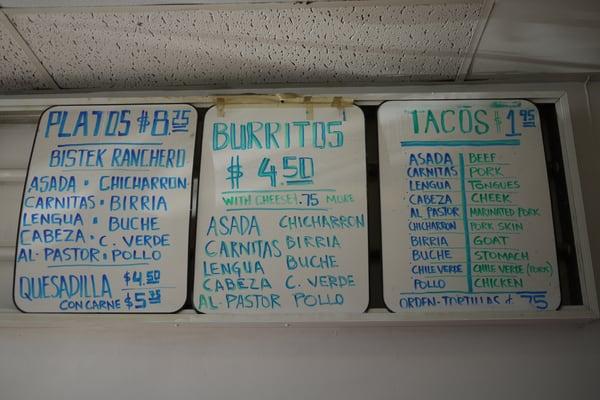 PLATOS $8.75
BISTEK RANCHERO
ASADA • CHICHARRON
CARNITAS • BIRRIA
LENGUA • BUCHE
CABEZA • C. VERDE
AL PASTOR • POLLO
QUESADILLA $4.50
CON CARNE $5.35
BURRITOS
$4.50
WITH CHEESE! .75 MORE
ASADA CHICHARRON
CARNITAS BIRRIA
LENGUA BUCHE
CABEZA C. VERDE
AL PASTOR POLLO
TACOS $1.95
ASADA BEEF
CARNITAS PORK
LENGUA TONGUES
CABEZA CHEEK
AL PASTOR MARINATED PORK
CHICHARRON PORK SKIN
BIRRIA GOAT
BUCHE STOMACH
CHILE VERDE CHILE VERDE (PORK)
POLLO CHICKEN
ORDEN-TORTILLAS ¢ 75